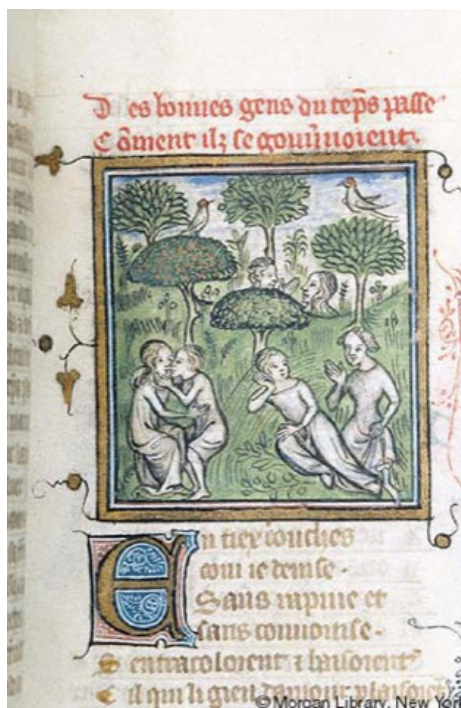 Des bonnes gens du teps passe
Coment ilz se gouvnoient.
En tiex couches
com ie devise.
Sans rapine et
sans convoitise.
Sentracoloient & baisoient
Cil qui li gieu damour plaisoient
© Morgan Library, New York